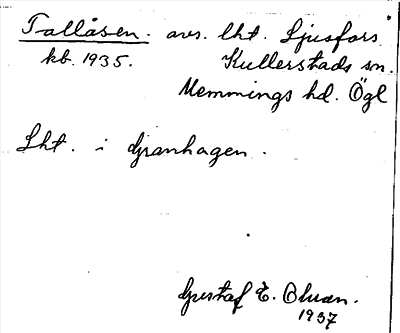 Tallåsen. avs. lht. Ljusfors
kb. 1935. Kullerstads sn.
Memmings hd. Ögl
Lht. i Granhagen.
Gustaf E. Olsson.
1937